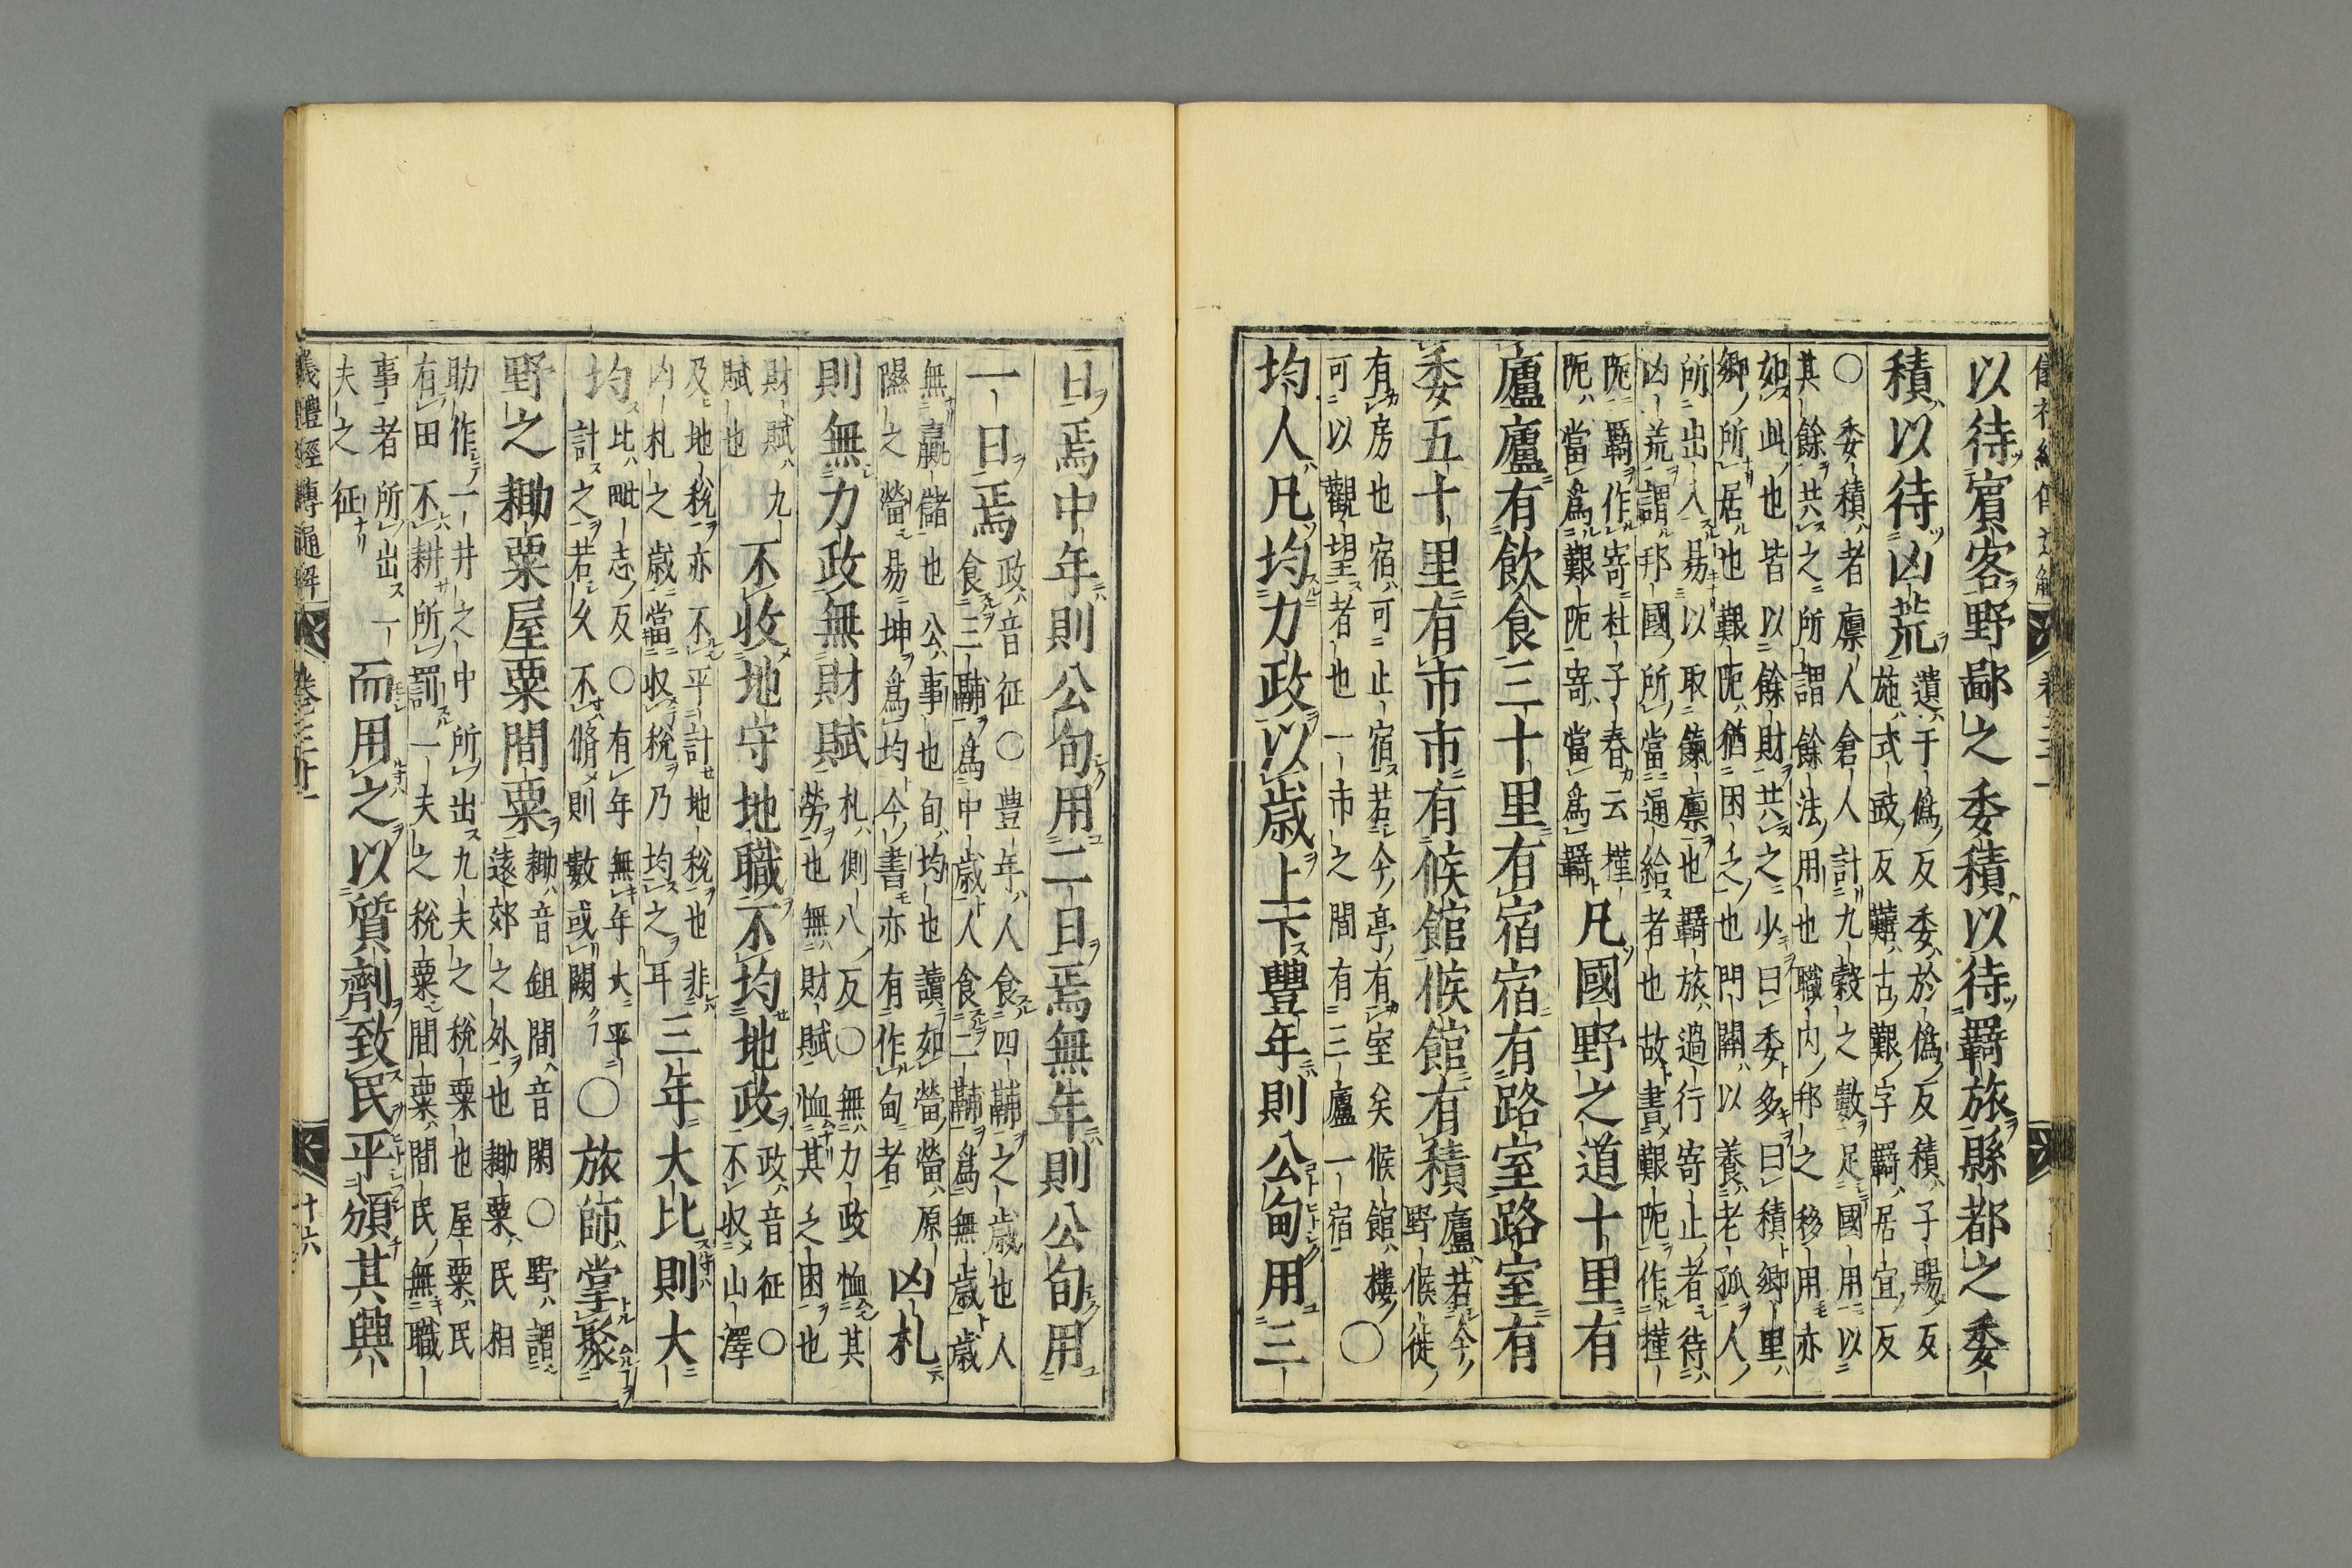 以待賓客野鄙之委積以待羇旅縣都之委
積以待凶荒
遺于僞反委於僞反積子賜反
施式豉反囏古艱字羇居宜反
○委積者廩人倉人計九穀之數足國用以
其餘共之所謂餘法用也職內邦之移用亦
如此也皆以餘財共之少曰委多曰積鄉里
鄉所居也艱阨猶困乏也門關以養老孤人
所出入易以取餼廩也羇旅過行寄止者待
凶荒謂邦國所當通給者也故書艱阨作㨷
阨羇作寄杜子春云㨷
阨當爲艱阨寄當爲羇
凡國野之道十里有
廬廬有飲食三十里有宿宿有路室路室有
委五十里有市市有候館候館有積
廬若今
野候徙
有房也宿可止宿若今亭有室矣候館樓
可以觀望者也一市之間有三廬一宿
○
均人凡均力政以歲上下豐年則公旬用三
日焉中年則公旬用二日焉無年則公旬用
一日焉
政音征○豐年人食四鬴之歲也人
食三鬴爲中歲人食二鬴爲無歲歲
無贏儲也公事也旬均也讀如營營原
隰之營易坤爲均今書亦有作旬者
凶札
則無力政無財賦
札側八反○無力政恤其
勞也無財賦恤其乏困也
財賦九
賦也
不收地守地職不均地政
政音征○
不收山澤
及地稅亦不平計地稅也非
凶札之歲當收稅乃均之耳
三年大比則大
均
比毗志反○有年無年大平
計之若久不脩則數或闕
○旅師掌聚
野之耡粟屋粟間粟
耡音鉏間音閑○野謂
遠郊之外也耡粟民相
助作一井之中所出九夫之稅粟也屋粟民
有田不耕所罰一夫之稅粟間粟間民無職
事者所出一
夫之征
而用之以質劑致民平頒其興
儀禮經傳通解
卷三十一
十六